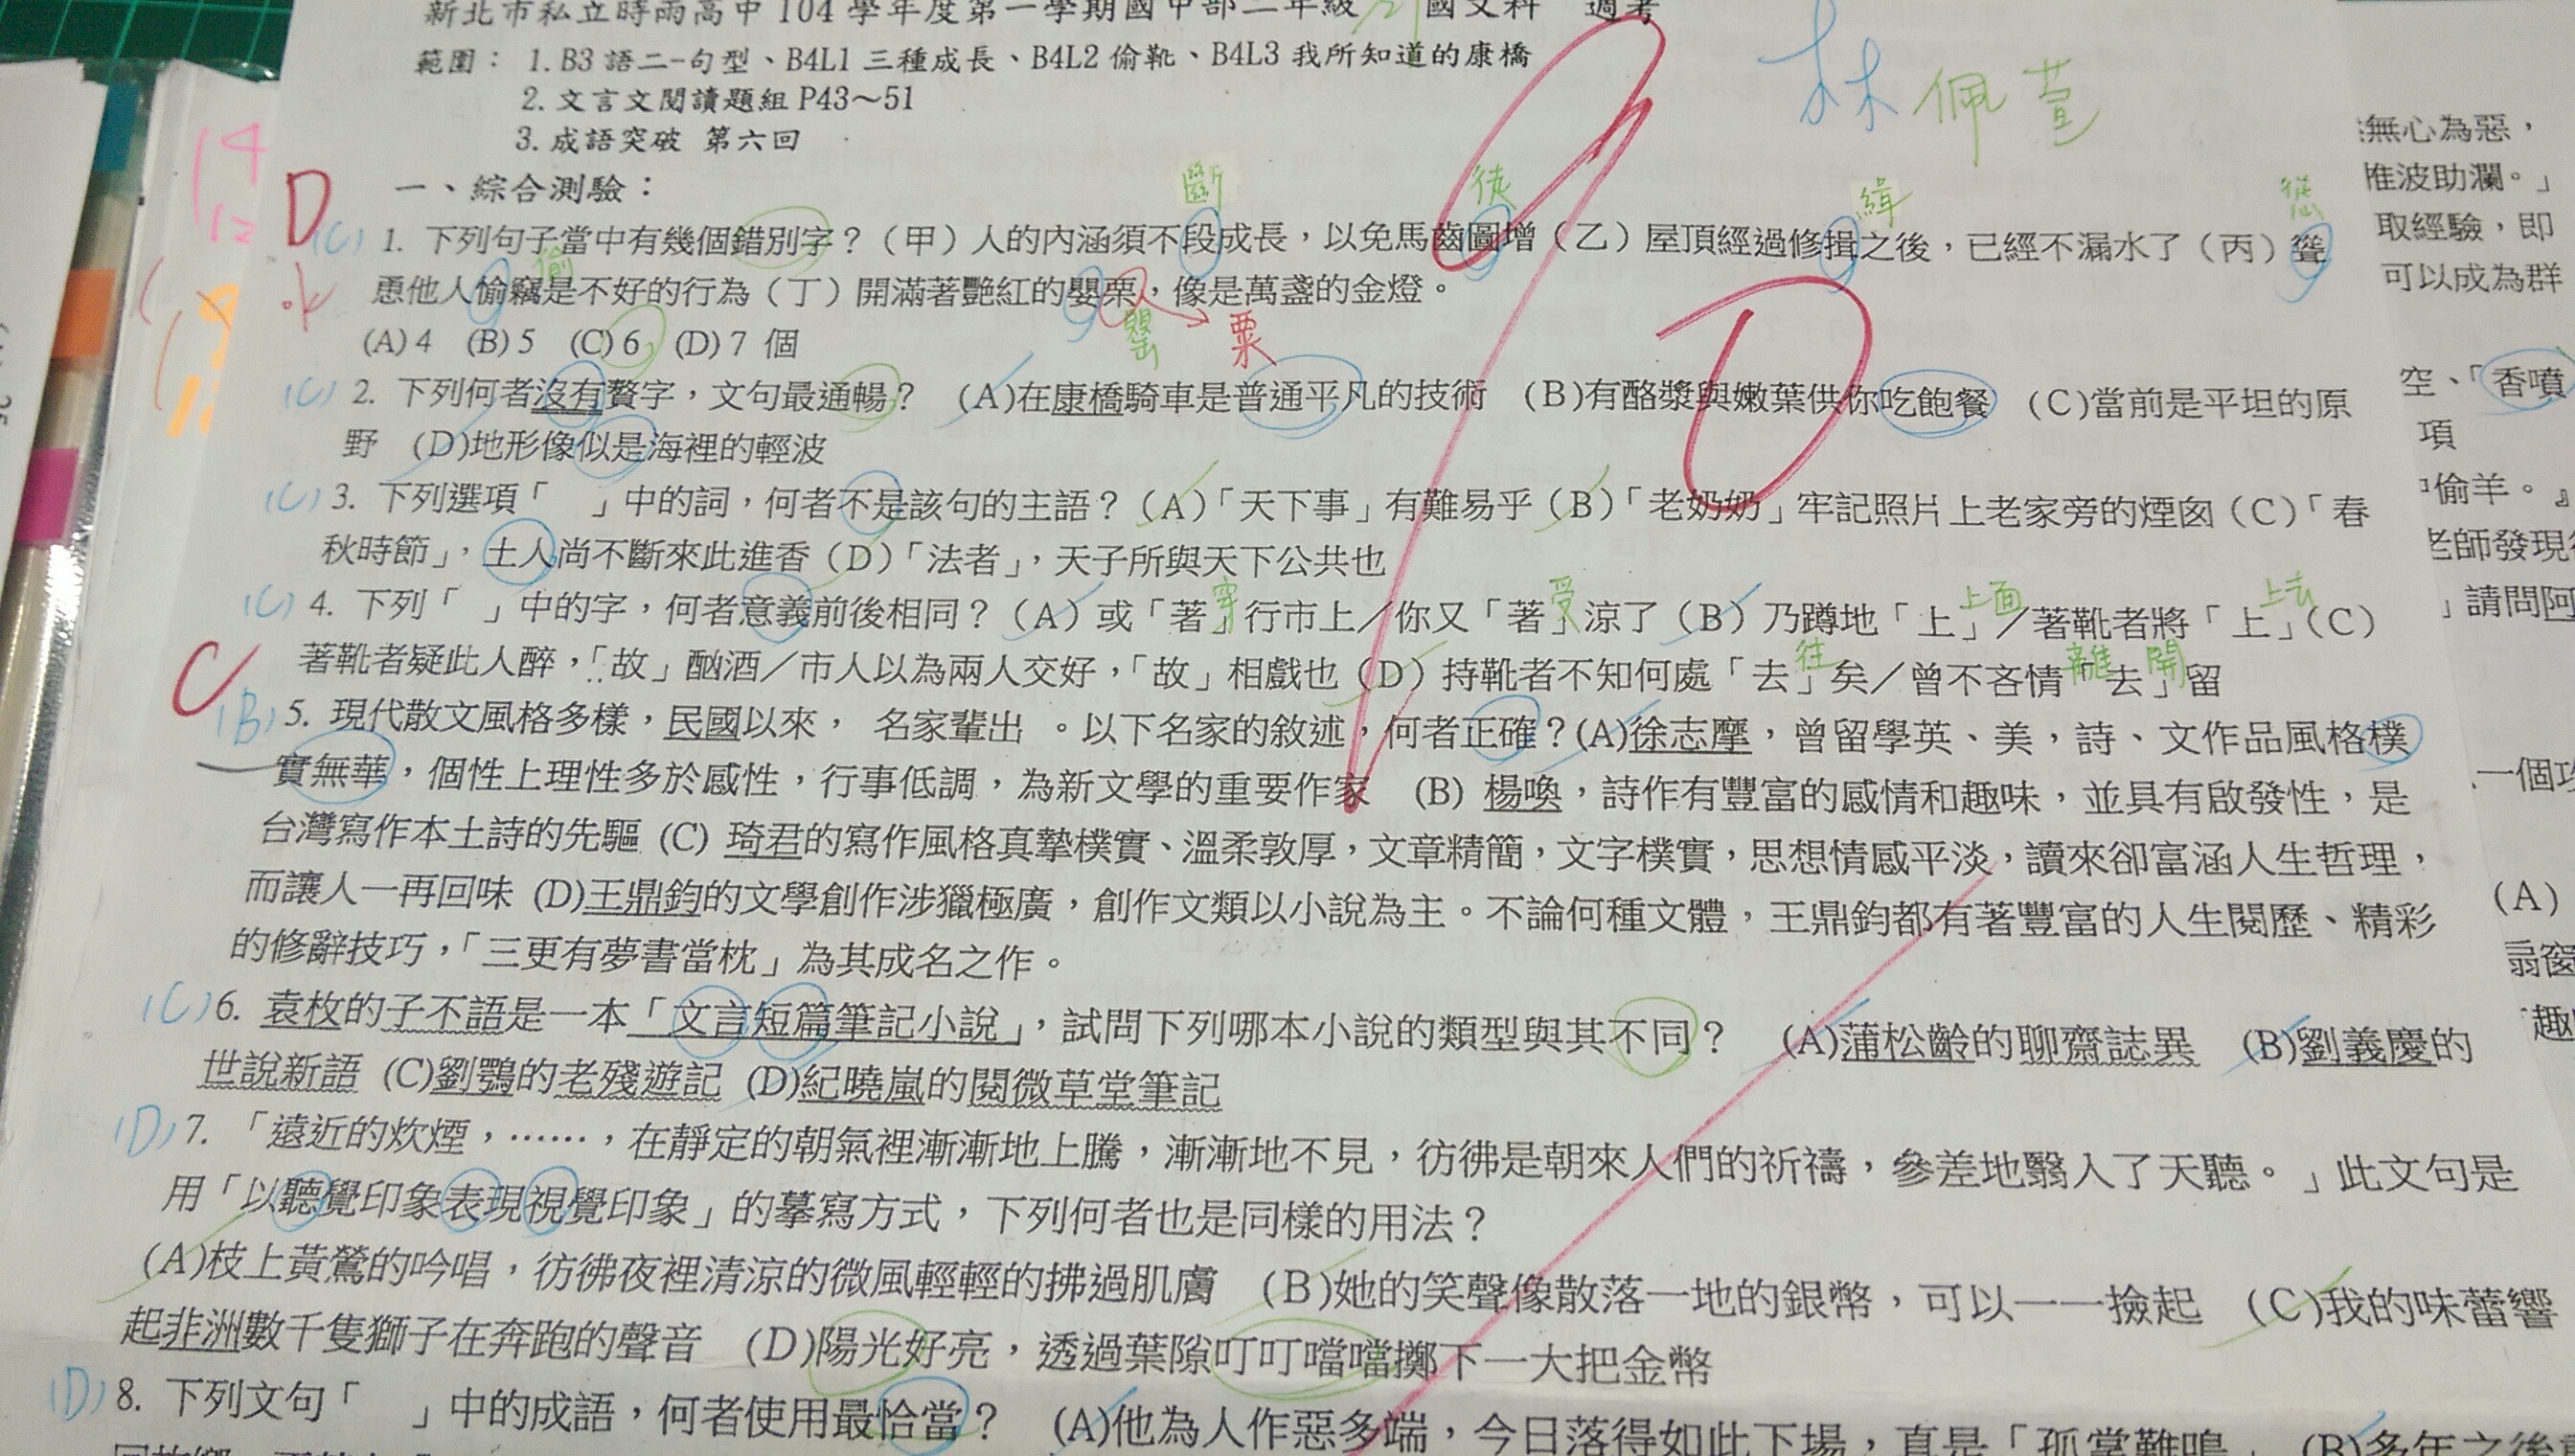 新北市私立時雨高中 104 學年度第一學期國中部二年級 國文科 週考
範圍： 1. B3 語二-句型、B4L1 三種成長、B4L2 偷靴、B4L3 我所知道的康橋
2. 文言文閱讀題組 P43～51
3. 成語突破 第六回
林佩萱
14
12
D
一、綜合測驗：
斷 徒 緝 慫
(C) 1. 下列句子當中有幾個錯別字？（甲）人的內涵須不段成長，以免馬齒圖增（乙）屋頂經過修揖之後，已經不漏水了（丙）聳
偷
恿他人偷竊是不好的行為（丁）開滿著艷紅的嬰栗，像是萬盞的金燈。
罌 粟
(A) 4 (B) 5 (C) 6 (D) 7 個
D
(C) 2. 下列何者沒有贅字，文句最通暢？ (A)在康橋騎車是普通平凡的技術 (B)有酪漿與嫩葉供你吃飽餐 (C)當前是平坦的原
野 (D)地形像似是海裡的輕波
(C) 3. 下列選項「 」中的詞，何者不是該句的主語？（A）「天下事」有難易乎（B）「老奶奶」牢記照片上老家旁的煙囪（C）「春
秋時節」，土人尚不斷來此進香（D）「法者」，天子所與天下公共也
穿 受 上面 上去
(C) 4. 下列「 」中的字，何者意義前後相同？（A）或「著」行市上／你又「著」涼了（B）乃蹲地「上」／著靴者將「上」（C）
往 離開
著靴者疑此人醉，「故」酗酒／市人以為兩人交好，「故」相戲也（D）持靴者不知何處「去」矣／曾不吝情「去」留
C
(B) 5. 現代散文風格多樣，民國以來， 名家輩出 。以下名家的敘述，何者正確？(A)徐志摩，曾留學英、美，詩、文作品風格樸
實無華，個性上理性多於感性，行事低調，為新文學的重要作家 (B) 楊喚，詩作有豐富的感情和趣味，並具有啟發性，是
台灣寫作本土詩的先驅 (C) 琦君的寫作風格真摯樸實、溫柔敦厚，文章精簡，文字樸實，思想情感平淡，讀來卻富涵人生哲理，
而讓人一再回味 (D)王鼎鈞的文學創作涉獵極廣，創作文類以小說為主。不論何種文體，王鼎鈞都有著豐富的人生閱歷、精彩
的修辭技巧，「三更有夢書當枕」為其成名之作。
(C) 6. 袁枚的子不語是一本「文言短篇筆記小說」，試問下列哪本小說的類型與其不同？ (A)蒲松齡的聊齋誌異 (B)劉義慶的
世說新語 (C)劉鶚的老殘遊記 (D)紀曉嵐的閱微草堂筆記
(D) 7. 「遠近的炊煙，……，在靜定的朝氣裡漸漸地上騰，漸漸地不見，彷彿是朝來人們的祈禱，參差地翳入了天聽。」此文句是
用「以聽覺印象表現視覺印象」的摹寫方式，下列何者也是同樣的用法？
(A)枝上黃鶯的吟唱，彷彿夜裡清涼的微風輕輕的拂過肌膚 (B)她的笑聲像散落一地的銀幣，可以一一撿起 (C)我的味蕾響
起非洲數千隻獅子在奔跑的聲音 (D)陽光好亮，透過葉隙叮叮噹噹擲下一大把金幣
(D) 8. 下列文句「 」中的成語，何者使用最恰當？ (A)他為人作惡多端，今日落得如此下場，真是「孤掌難鳴」 (B)多年之後
無心為惡，
推波助瀾。」
取經驗，即
可以成為群
空、「香噴
項
偷羊。』
老師發現
」請問阿
一個
(A)
扇窗
趣